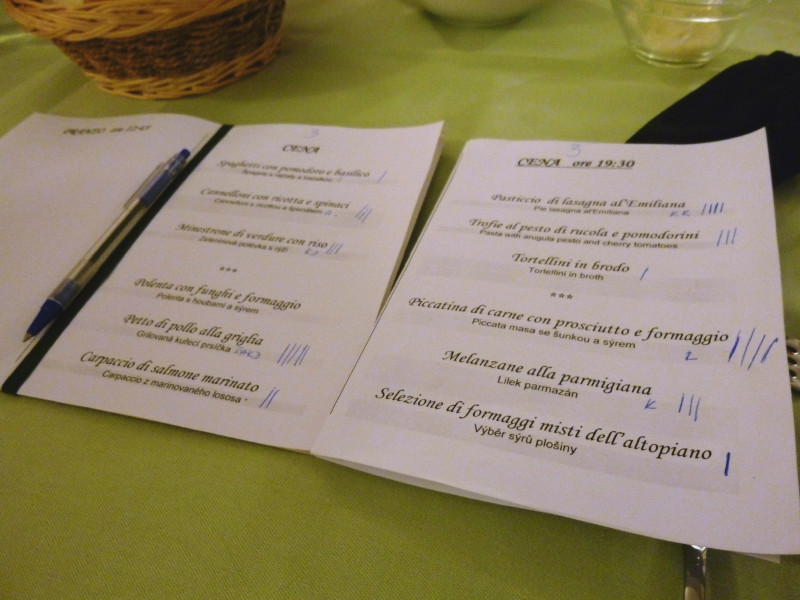 PRANZO ore
3
CENA
Spaghetti con pomodoro e basilico
Cannelloni con ricotta e spinaci
Minestrone di verdure con riso
Zeleninová polévka s rýží
***
Polenta con funghi e formaggio
Polenta s houbami a sýrem
Petto di pollo alla griglia
Grilovaná kuřecí prsíčka
Carpaccio di salmone marinato
Carpaccio z marinovaného lososa
3
CENA ore 19:30
Pasticcio di lasagna al'Emiliana
Pie lasagna al'Emiliana
Trofie al pesto di rucola e pomodorini
Pasta with arugula pesto and cherry tomatoes
Tortellini in brodo
Tortellini in broth
***
Piccatina di carne con prosciutto e formaggio
Piccata masa se šunkou a sýrem
Melanzane alla parmigiana
Lilek parmazán
K
Selezione di formaggi misti dell'altopiano
Výběr sýrů plošiny